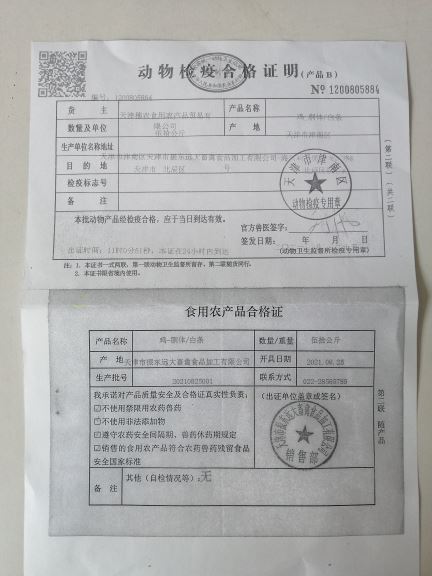 动物检疫合格证明（产品B）
编号：1200805884
№ 1200805884
货主
天津 农食用农产品贸易有限公司
产品名称
鸡-胴体/白条
数量及单位
伍拾公斤
产地
天津市津南区
生产单位名称地址
天津市津南区天津市振东远大畜禽食品加工有限公司
目的地
天津市 北辰区
检疫标志号
备注
本批动物产品经检疫合格，应于当日到达有效。
官方兽医签字：
签发日期： 年 月 日
出证时间：11时0分51秒，本证在24小时内到达
（动物卫生监督所检疫专用章）
天津市津南区
动物检疫专用章
注：1．本证书一式两联，第一联动物卫生监督所留存，第二联随货同行。
2．本证书限省境内使用。
（第二联）
（共二联）
食用农产品合格证
产品名称
鸡-胴体/白条
数量/重量
伍拾公斤
产地
天津市振东远大畜禽食品加工有限公司
开具日期
2021.08.25
生产批号
20210825001
联系方式
022-28569789
我承诺对产品质量安全及合格证真实性负责：
☑不使用禁限用农药兽药
☑不使用非法添加物
☑遵守农药安全间隔期、兽药休药期规定
☑销售的食用农产品符合农药兽药残留食品安全国家标准
（出证单位盖章或签名）
天津市振东远大畜禽食品加工有限公司
销售部
备注
其他（自检情况等）：无
第二联 随产品